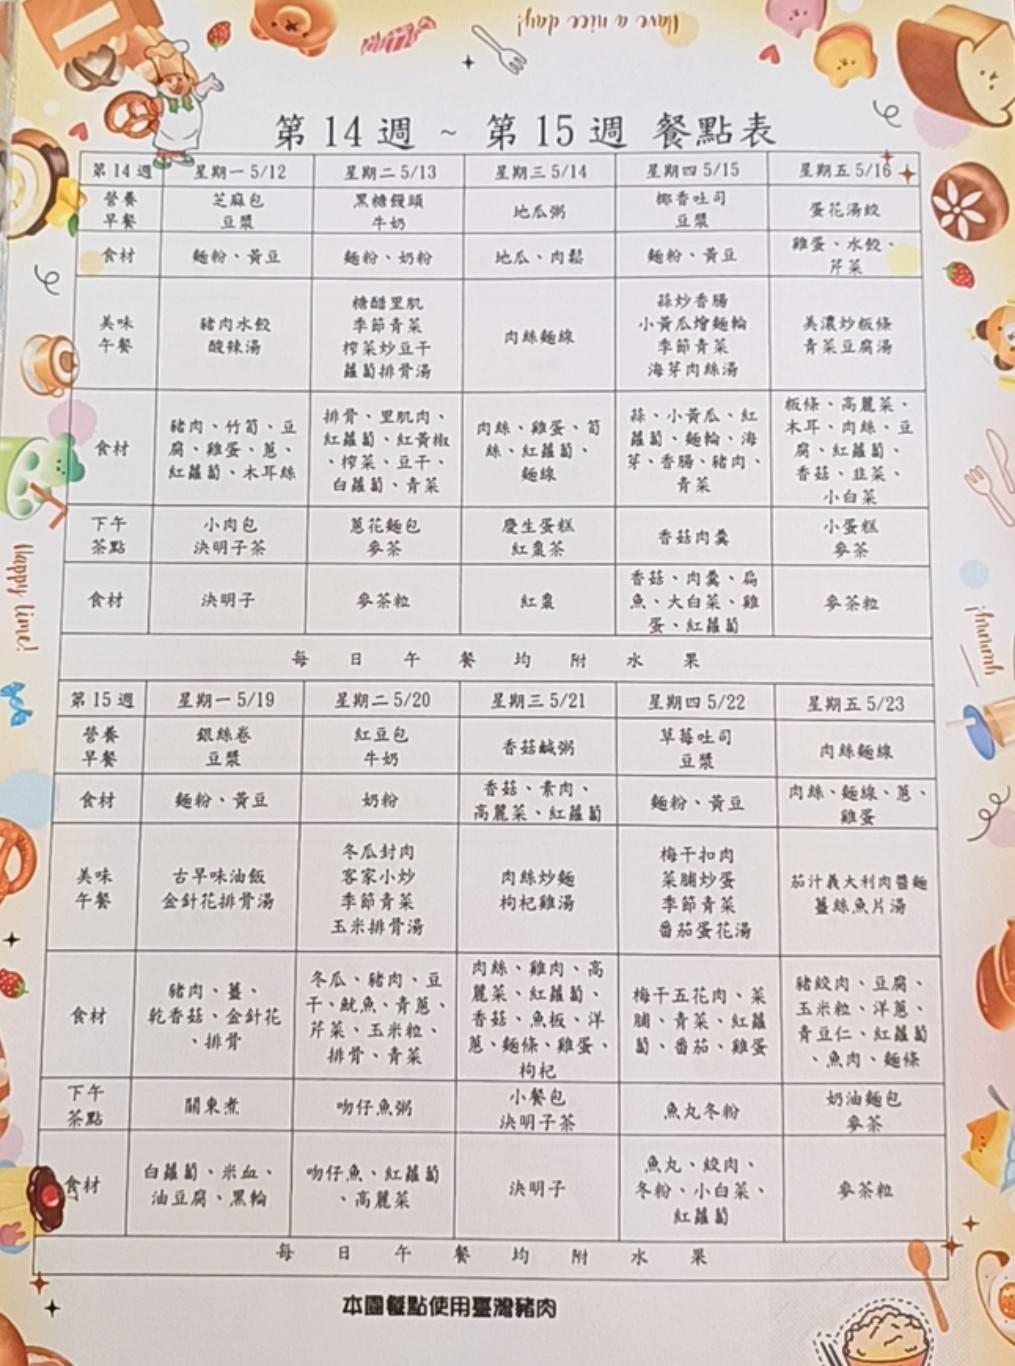 Have a nice day!
第 14 週 ~ 第 15 週 餐點表
第 14 週 星期一 5/12 星期二 5/13 星期三 5/14 星期四 5/15 星期五 5/16
營養 芝麻包 黑糖饅頭 地瓜粥 椰香吐司 蛋花湯餃
早餐 豆漿 牛奶 豆漿
食材 麵粉、黃豆 麵粉、奶粉 地瓜、肉鬆 麵粉、黃豆 雞蛋、水餃、
芹菜
糖醋里肌 蒜炒香腸
美味 豬肉水餃 季節青菜 肉絲麵線 小黃瓜燴麵輪 美濃炒粄條
午餐 酸辣湯 榨菜炒豆干 季節青菜 青菜豆腐湯
蘿蔔排骨湯 海芽肉絲湯
粄條、高麗菜、
豬肉、竹筍、豆 排骨、里肌肉、 肉絲、雞蛋、筍 蒜、小黃瓜、紅 木耳、肉絲、豆
食材 腐、雞蛋、蔥、 紅蘿蔔、紅黃椒 絲、紅蘿蔔、 蘿蔔、麵輪、海 腐、紅蘿蔔、
紅蘿蔔、木耳絲 、榨菜、豆干、 麵線 芽、香腸、豬肉、 香菇、韭菜、
白蘿蔔、青菜 青菜 小白菜
下午 小肉包 蔥花麵包 慶生蛋糕 香菇肉羹 小蛋糕
茶點 決明子茶 麥茶 紅棗茶 麥茶
香菇、肉羹、扁
食材 決明子 麥茶粒 紅棗 魚、大白菜、雞 麥茶粒
蛋、紅蘿蔔
每 日 午 餐 均 附 水 果
第 15 週 星期一 5/19 星期二 5/20 星期三 5/21 星期四 5/22 星期五 5/23
營養 銀絲卷 紅豆包 香菇鹹粥 草莓吐司 肉絲麵線
早餐 豆漿 牛奶 豆漿
食材 麵粉、黃豆 奶粉 香菇、素肉、 麵粉、黃豆 肉絲、麵線、蔥、
高麗菜、紅蘿蔔 雞蛋
冬瓜封肉 梅干扣肉
美味 古早味油飯 客家小炒 肉絲炒麵 菜脯炒蛋 茄汁義大利肉醬麵
午餐 金針花排骨湯 季節青菜 枸杞雞湯 季節青菜 薑絲魚片湯
玉米排骨湯 番茄蛋花湯
肉絲、雞肉、高
豬肉、薑、 冬瓜、豬肉、豆 麗菜、紅蘿蔔、 梅干五花肉、菜 豬絞肉、豆腐、
食材 乾香菇、金針花 干、魷魚、青蔥、 香菇、魚板、洋 脯、青菜、紅蘿 玉米粒、洋蔥、
、排骨 芹菜、玉米粒、 蔥、麵條、雞蛋、 蔔、番茄、雞蛋 青豆仁、紅蘿蔔
排骨、青菜 枸杞 、魚肉、麵條
下午 關東煮 吻仔魚粥 小餐包 魚丸冬粉 奶油麵包
茶點 決明子茶 麥茶
魚丸、絞肉、
食材 白蘿蔔、米血、 吻仔魚、紅蘿蔔 決明子 冬粉、小白菜、 麥茶粒
油豆腐、黑輪 、高麗菜 紅蘿蔔
每 日 午 餐 均 附 水 果
本園餐點使用臺灣豬肉
Happy time!